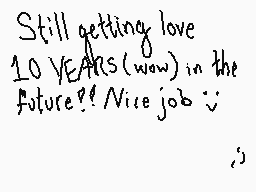 Still getting love
10 YEARS (wow) in the
future!! Nice job :)
:)